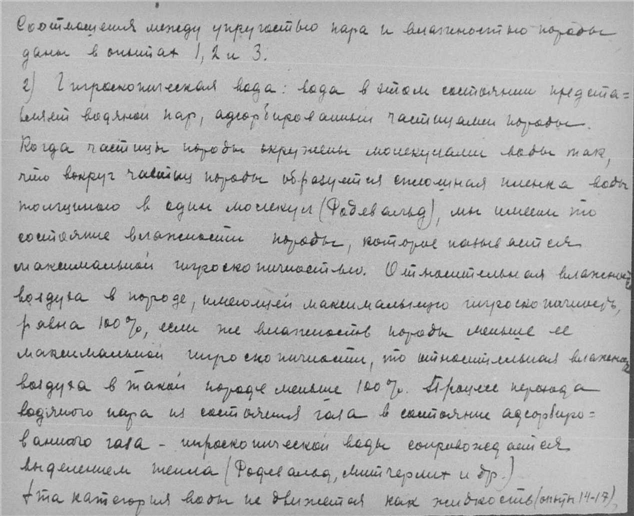 Соотношения между упругостью пара и влажностью породы
даны в опытах 1, 2 и 3.
2) Гигроскопическая вода: вода в этом состоянии предста=
вляет водяной пар, адсорбированный частицами породы.
Когда частицы породы окружены молекулами воды так,
что вокруг частиц породы образуется сплошная пленка воды
толщиною в один молекул (Родевальд), мы имеем то
состояние влажности породы, которое называется
максимальной гигроскопичностью. Относительная влажность
воздуха в породе, имеющей максимальную гигроскопичность,
равна 100%, если же влажность породы меньше ее
максимальной гигроскопичности, то относительная влажность
воздуха в такой породе меньше 100%. Процесс перехода
водяного пара из состояния газа в состояние адсорбиро=
ванного газа – гигроскопической воды сопровождается
выделением тепла (Родевальд, Митчерлих и др.)
Эта категория воды не движется как жидкость (опыты 14-17),